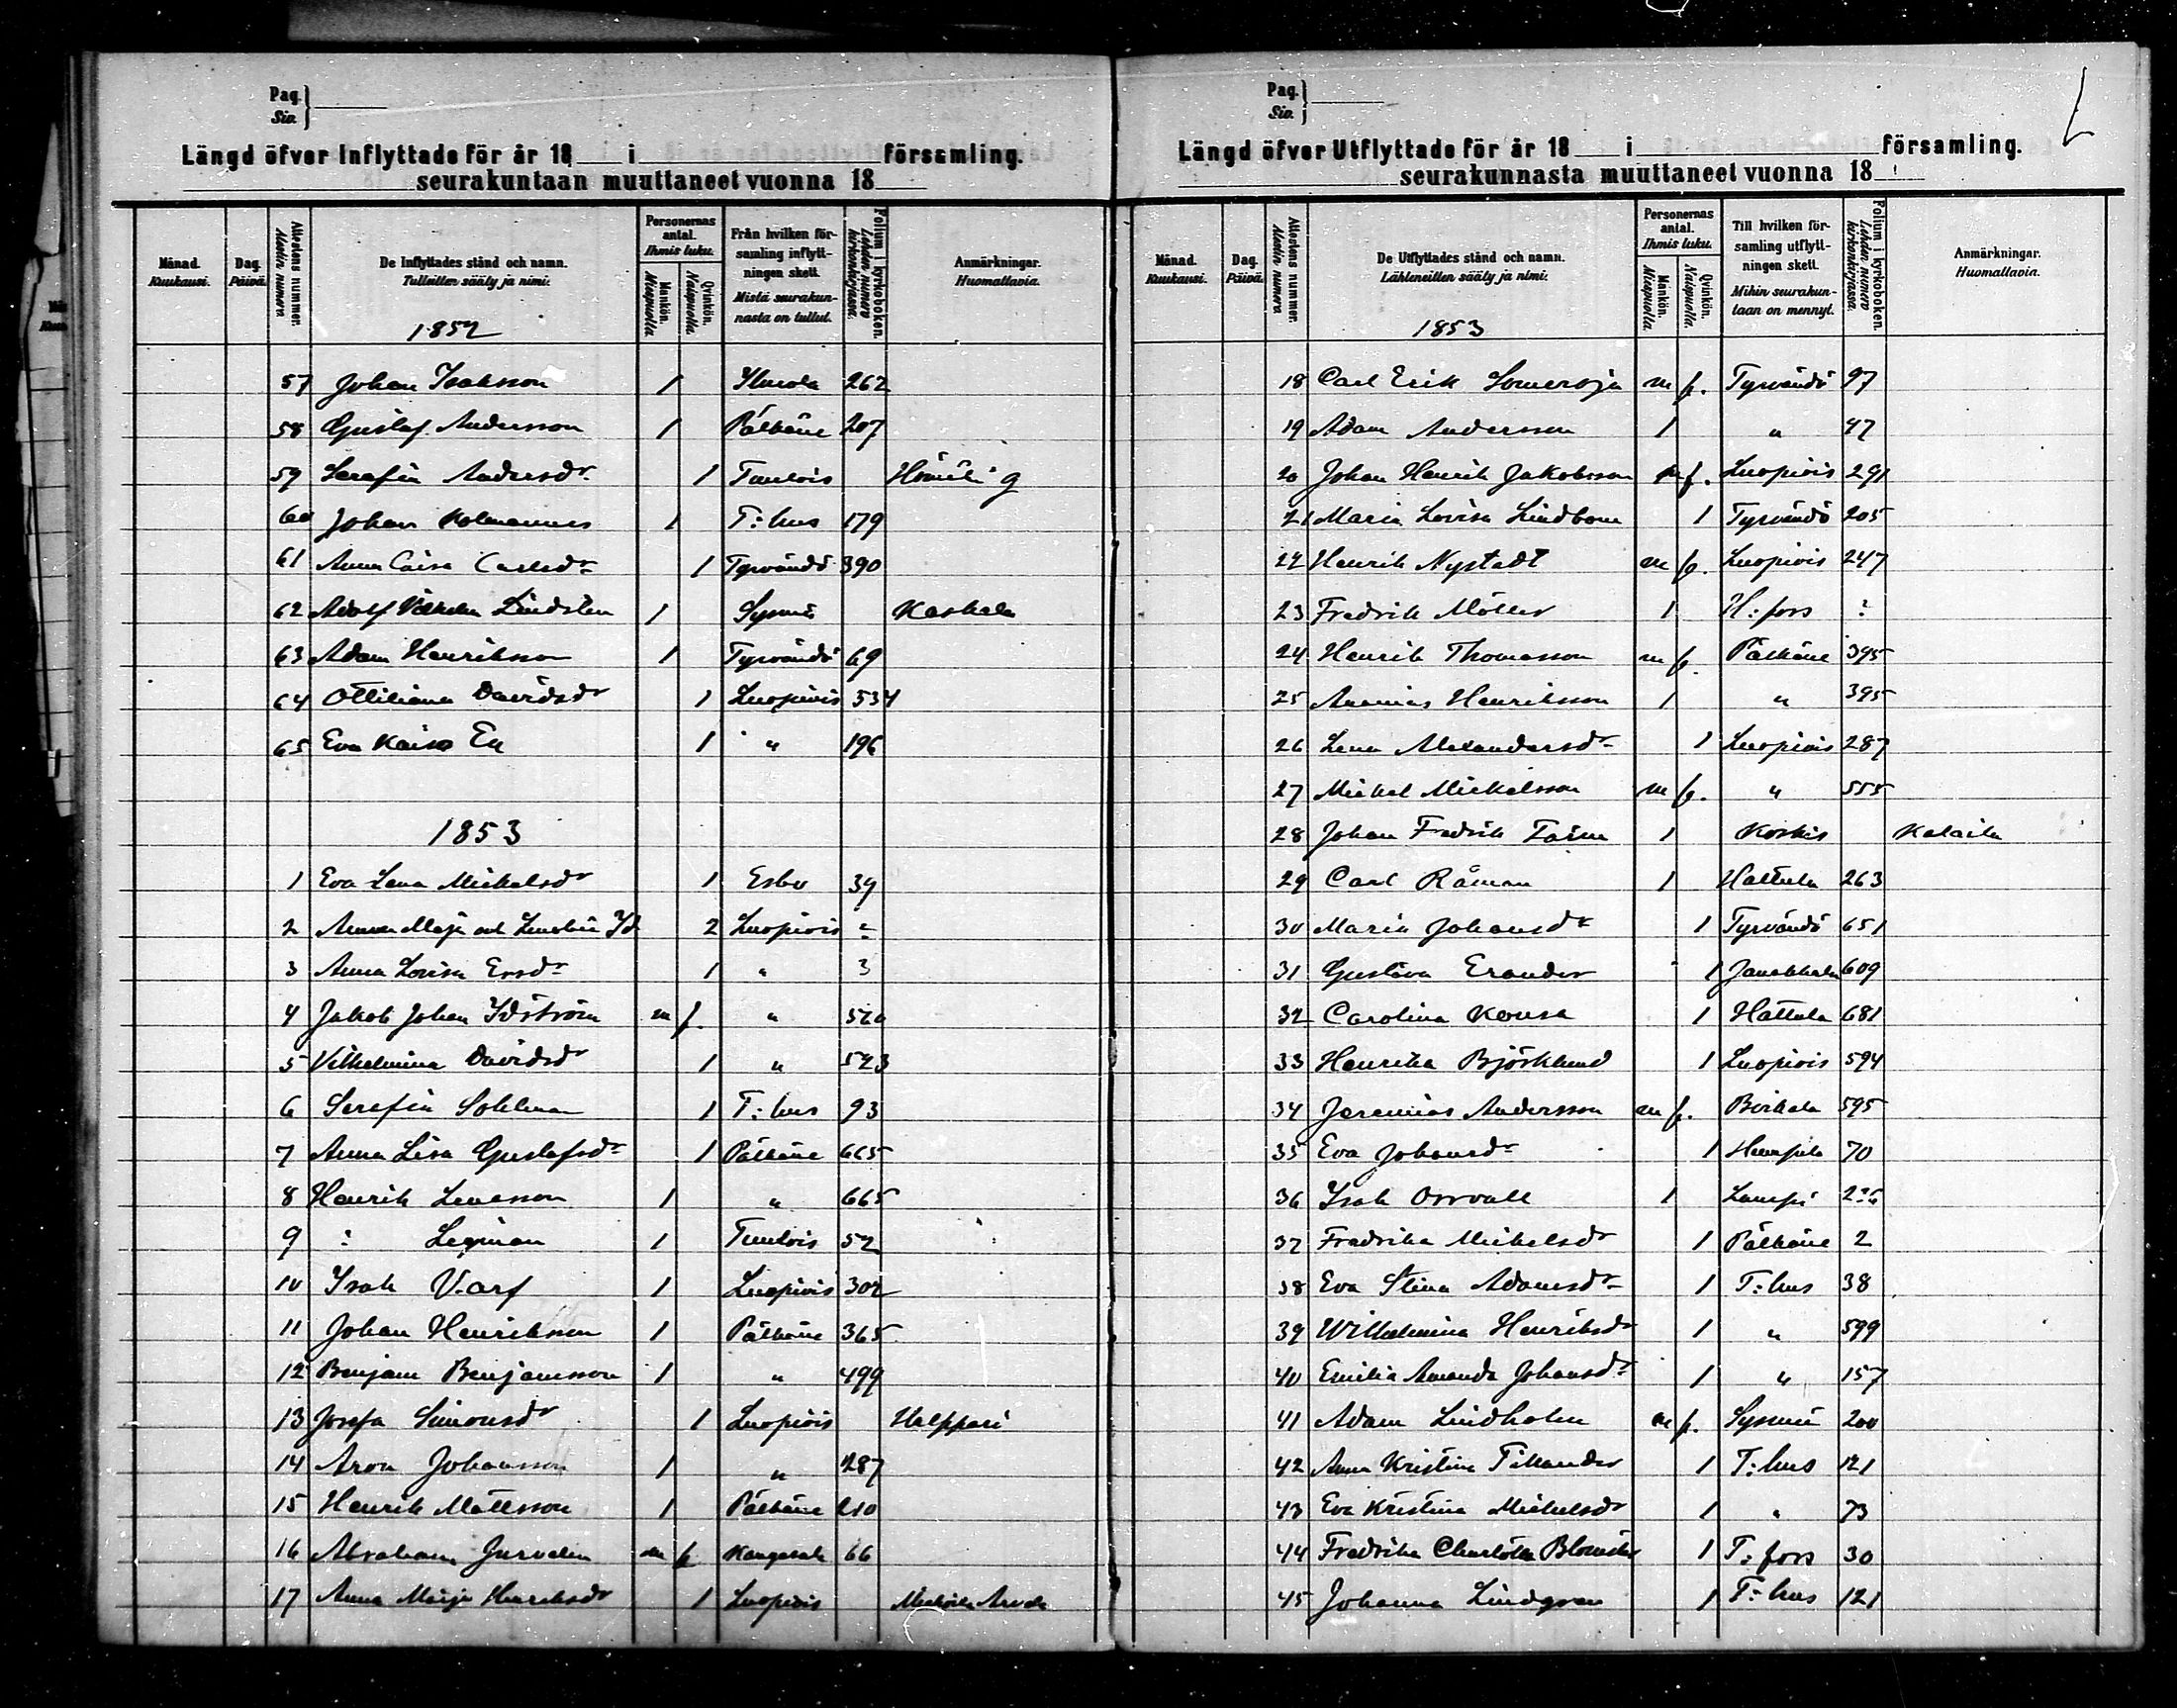 Pag.
Siv.
Längd öfver Inflyttade för år 18 i församling.
seurakuntaan muuttaneet vuonna 18
Månad. Kuukausi.
Dag. Päivä.
Attestens nummer. Alestin numero
De Inflyttades stånd och namn.
Tulleitten sääty ja nimi.
Personernas antal.
Ihmis luku.
Mankön. Miespuolia
Qvinkön. Naispuolia.
Från hvilken för-
samling inflytt-
ningen skett.
Mistä seurakun-
nasta on tullut.
Folium i kyrkoboken.
Lehden numero kirkonkirjassa.
Anmärkningar.
Huomattavia.
1852
57 Johan Isaksson 1 262
58 Gustaf Andersson 1 Pälkäne 207
59 Serafia Andersdr 1 Tuulois
60 Johan 1 T:hus 179
61 Anna Caisa Carlsdr 1 Tyrvändö 390
62 Adolf Vilhelm Lindsten 1 Sysmä Kaskala
63 Adam Henriksson 1 Tyrvändö 69
64 Ottiliana Davidsdr 1 Luopiois 534
65 Eva Kaisa 1 " 196
1853
1 Eva Lena Mickelsdr 1 Esbo 39
2 Anna Maja och 2 Luopiois ?
3 Anna Lovisa Ersdr 1 " 3
4 Jakob Johan Idström m f. " 520
5 Vilhelmina Davidsdr 1 " 523
6 Serafia Sohlman 1 T:hus 93
7 Anna Lisa Gustafsdr 1 Pälkäne 665
8 Henrik 1 " 665
9 ? Legman 1 Tuulois 52
10 Isak Varf 1 Luopiois 302
11 Johan Henriksson 1 Pälkäne 365
12 Benjam Benjamsson 1 " 499
13 Josefa Simonsdr 1 Luopiois
14 Aron Johansson 1 " 287
15 Henrik Mattsson 1 Pälkäne 210
16 Abraham m f Kangasala 66
17 Anna Maija Henriksdr 1 Luopiois
Pag.
Siv.
Längd öfver Utflyttade för år 18 i församling.
seurakunnasta muuttaneet vuonna 18
Månad. Kuukausi.
Dag. Päivä.
Attestens nummer. Alestin numero
De Utflyttades stånd och namn.
Lähteneitten sääty ja nimi.
Personernas antal.
Ihmis luku.
Mankön. Miespuolia
Qvinkön. Naispuolia.
Till hvilken för-
samling utflytt-
ningen skett.
Mihin seurakun-
taan on mennyt.
Folium i kyrkoboken.
Lehden numero kirkonkirjassa.
Anmärkningar.
Huomattavia.
1853
18 Carl Erik Someroja m f. Tyrvändö 97
19 Adam Andersson 1 " 47
20 Johan Henrik Jakobsson m f. Luopiois 291
21 Maria Lovisa Lindbom 1 Tyrvändö 205
22 Henrik Nystedt m f. Luopiois 247
23 Fredrik Möller 1 H:fors ?
24 Henrik Thomasson m f. Pälkäne 395
25 Ananias Henriksson 1 " 395
26 Lena Alexandersdr 1 Luopiois 287
27 Mickel Mickelsson m f. " 555
28 Johan Fredrik 1 Koskis
29 Carl Råman 1 Hattula 263
30 Maria Johansdr 1 Tyrvändö 651
31 Gustava Erander 1 Janakkala 609
32 Carolina Konsa 1 Hattula 681
33 Henrika Björklund 1 Luopiois 594
34 Jeremias Andersson m f. Birkala 595
35 Eva Johansdr 1 70
36 Isak Orrvall 1 Lampi 226
37 Fredrika Mickelsdr 1 Pälkäne 2
38 Eva Stina Adamsdr 1 T:hus 38
39 Wilhelmina Henriksdr 1 " 599
40 Emilia Amanda Johansdr 1 " 157
41 Adam Lindholm m f. Sysmä 200
42 Anna Kristina Tillander 1 T:hus 121
43 Eva Kristina Mickelsdr 1 " 73
44 Fredrika Charlotta 1 T:fors 30
45 Johanna Lindgren 1 T:hus 121